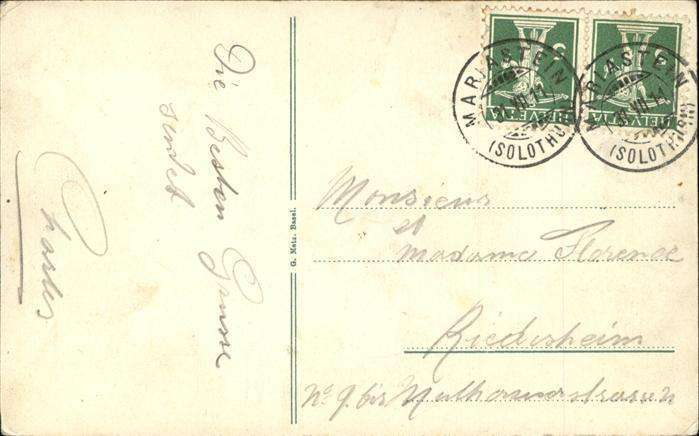 Die Besten Grüsse
sendet
Charles
G. Metz, Basel.
HELVETIA
HELVETIA
5
5
MARIASTEIN
(SOLOTHURN)
MARIASTEIN
(SOLOTHURN)
Monsieur
et
Madame Florence
Riedisheim
No 9. bis